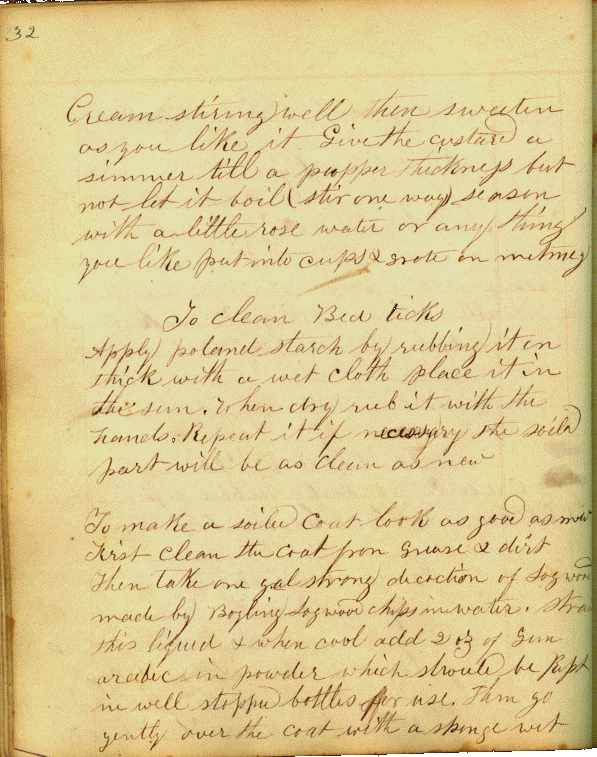 32
Cream stiring well then sweeten
as you like it Give the custard a
simmer till a propper thickness but
not let it boil (stir one way) season
with a little rose water or any thing
you like put into cups & grate on nutmeg
To clean Bed ticks
Apply poland starch by rubbing it on
thick with a wet cloth place it in
the sun. When dry rub it with the
hands. Repeat it if necessary the soild
part will be as clean as new
To make a soild coat look as good as new
First clean the coat from grease & dirt
then take one gal strong decoction of Logwood
made by Bogling Logwood chips in water. Strain
this liquid & when cool add 2 oz of Gum
arabic in powder which should be kept
in well stoppd bottles for use. Then go
gently over the coat with a sponge wet